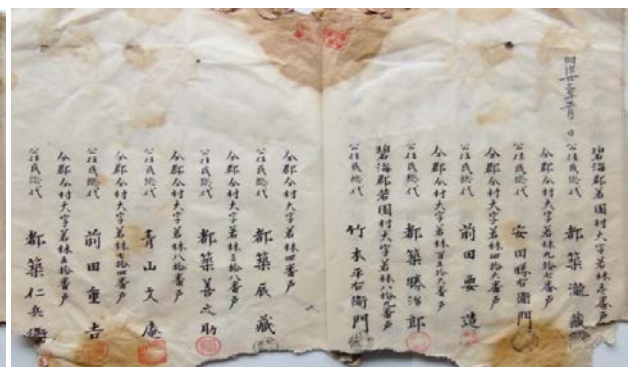 碧海郡若園村大字若林壱番戸
日 公住民總代 都築瀧藏
仝郡仝村大字若林九拾七番戸
公住民總代 安田勝右衛門
仝郡仝村大字若林四拾六番戸
公住民總代 前田要造
仝郡仝村大字若林百三拾九番戸
公住民總代 都築勝治郎
碧海郡若園村大字若林八拾九番戸
公住民總代 竹本平右衛門
仝郡仝村大字若林四番戸
公住民總代 都築辰藏
仝郡仝村大字若林三拾八番戸
公住民總代 都築善之助
仝郡仝村大字若林八拾番戸
公住民總代 青山文庵
仝郡仝村大字若林七拾四番戸
公住民總代 前田重吉
仝郡仝村大字若林五拾八番戸
公住民總代 都築仁兵衛